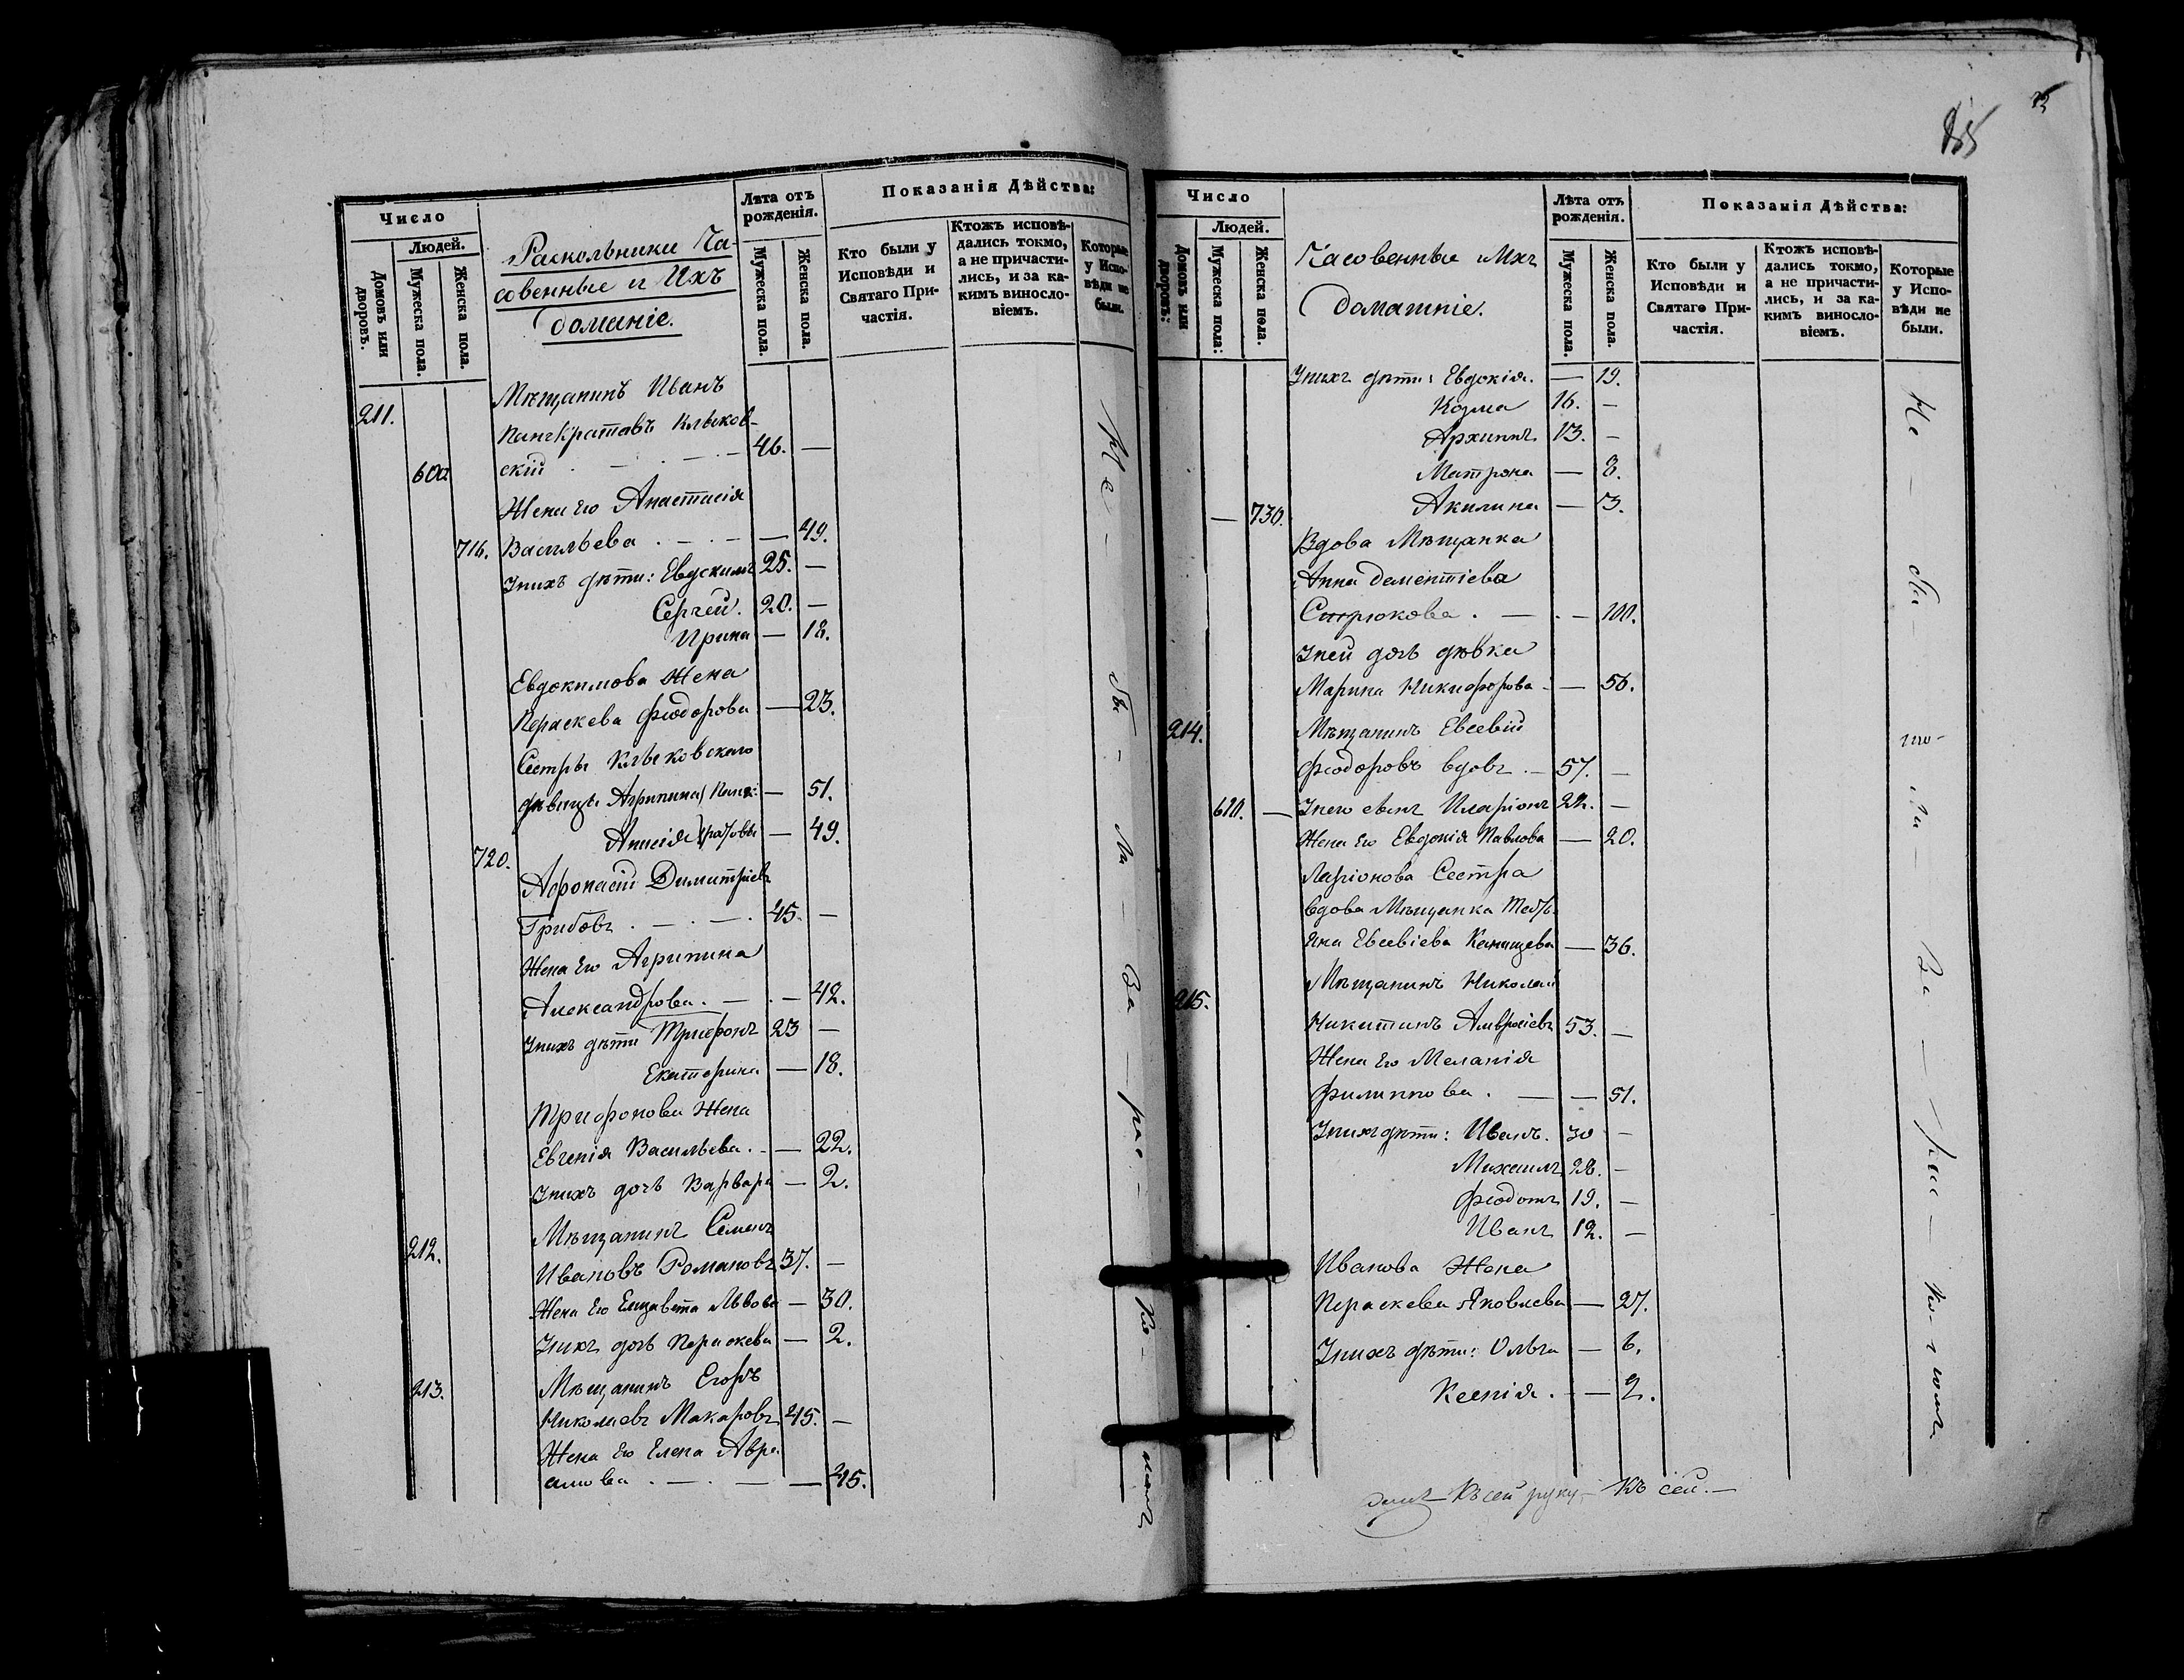 Число
Людей.
Домовъ или дворовъ.
Мужеска пола.
Женска пола.
Раскольники Ча-
совенные и Ихъ
домашніе.
Лѣта отъ рожденія.
Мужеска пола.
Женска пола.
Показанія Дѣйства:
Кто были у Исповѣди и Святаго При-частія.
Ктожъ исповѣ-дались токмо, а не причасти-лись, и за ка-кимъ винosло-віемъ.
Которые у Испо-вѣди не были.
211.
Мѣщанинъ Иванъ
Панкратовъ Клыков-
600 скій 46. —
Жена Его Анастасія
716. Васильева — 49.
У нихъ дѣти: Евдокимъ 25. —
Сергей. 20. —
Ирина — 18.
Евдокимова Жена
Пераскева Феодорова — 23.
Сестры Клыковскаго
дѣвицы Агрипина Панк: — 51.
720. Анисія ратовы — 49.
Афонасій Димитріевъ
Грибовъ 45. —
Жена Его Агрипина
Александрова. — 42.
У нихъ дѣти Трифонъ 23 —
Екатерина — 18.
Трифонова Жена
Евгенія Васильева. — 22.
У нихъ дочь Варвара — 2.
212. Мѣщанинъ Семенъ
Ивановъ Романовъ 37. —
Жена Его Елизавета Львова — 30.
У нихъ дочь Пераскева — 2.
213. Мѣщанинъ Егоръ
Николаевъ Макаровъ 45. —
Жена Его Елена Авра
амова — 45.
Не — бы — ли — за — рас — ко —
55
Число
Людей.
Домовъ или дворовъ:
Мужеска пола:
Женска пола.
Часовенные и Ихъ
домашніе.
Лѣта отъ рожденія.
Мужеска пола.
Женска пола.
Показанія Дѣйства:
Кто были у Исповѣди и Святаго При-частія.
Ктожъ исповѣ-дались токмо, а не причасти-лись, и за ка-кимъ винosло-віемъ.
Которые у Испо-вѣди не были.
У нихъ дѣти: Евдокія. — 19.
Козма 16. —
Архиппъ 13. —
Матрона — 8.
— 730. Акилина — 3.
Вдова Мѣщанка
Анна Дементіева
Стрюкова —
У ней дочь дѣвка
Марина Никифорова — 56.
214. Мѣщанинъ Евсевій
Феодоровъ вдовъ 57. —
610. — У него сынъ Иларіонъ 22. —
Жена Его Евдокія Павлова — 20.
Ларіонова Сестра
вдова Мѣщанка
Евсевіева Канищева — 36.
215. Мѣщанинъ Николай
Никитинъ Амвросіевъ 53. —
Жена Его Меланія
Филиппова. — 51.
У нихъ дѣти: Иванъ. 30 —
Михаилъ 28. —
Феодотъ 19. —
Иванъ 12. —
Иванова Жена
Пераскева Яковлева — 27.
У нихъ дѣти: Ольга — 6.
Ксенія. — 2.
Не — бы — ли — за — рас — ко —
Къ сей руку — Къ сей. —